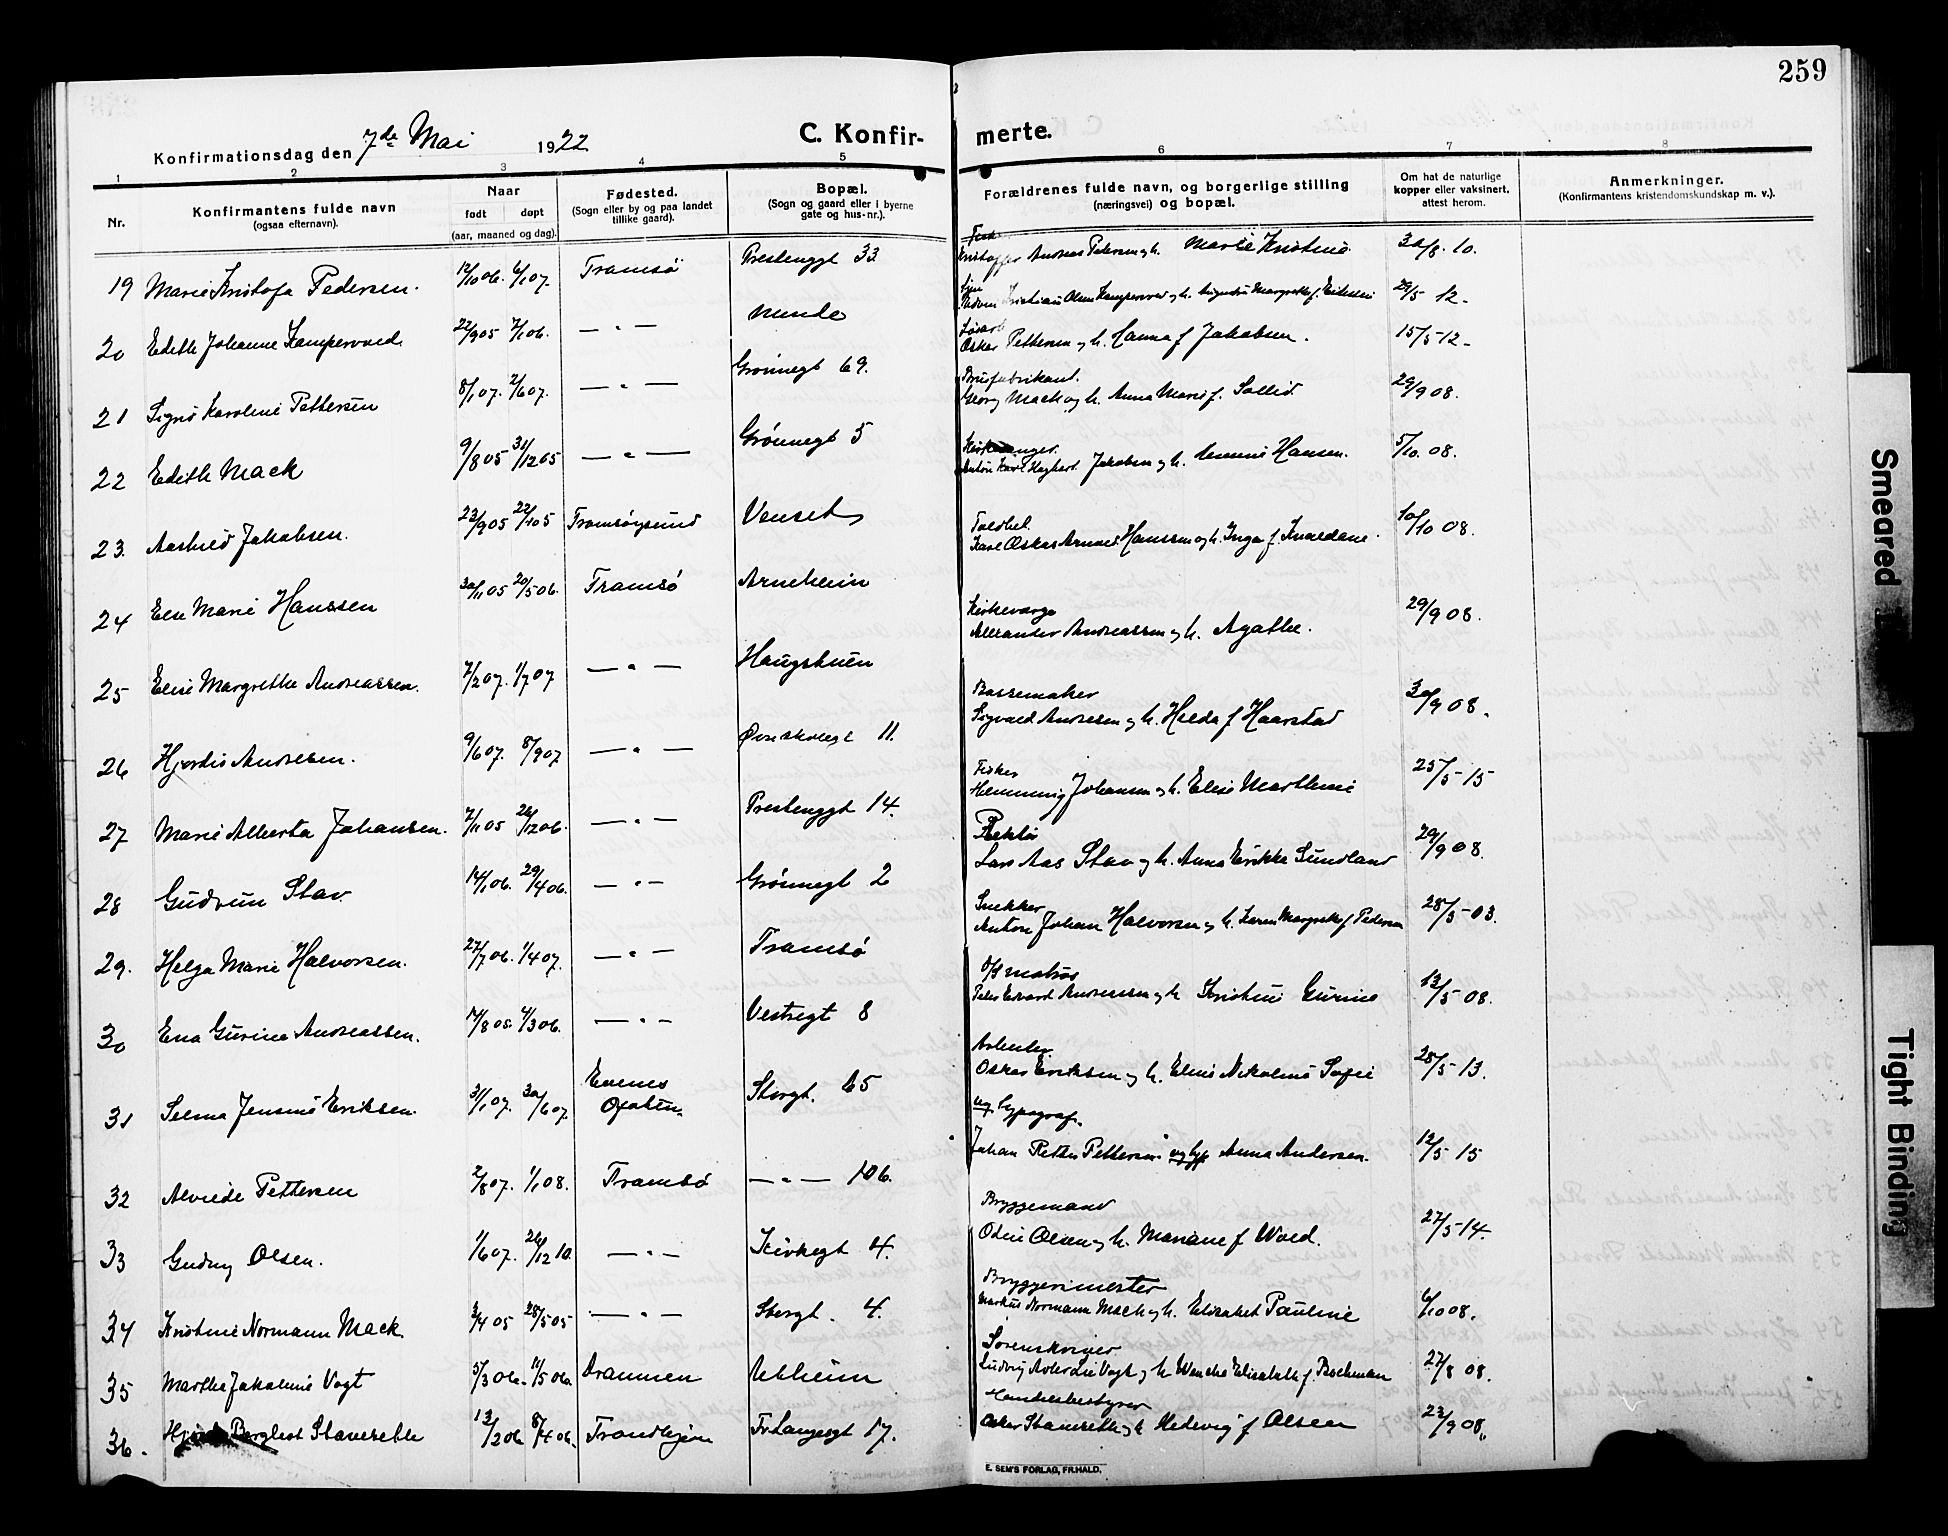 259
Konfirmationsdag den 7de Mai 1922
C. Konfirmerte.
1 2 3 4 5 6 7 8
Nr. Konfirmantens fulde navn (ogsaa efternavn). Naar født døpt (aar, maaned og dag). Fødested. (Sogn eller by og paa landet tillike gaard). Bopæl. (Sogn og gaard eller i byerne gate og hus-nr.). Forældrenes fulde navn, og borgerlige stilling (næringsvei) og bopæl. Om hat de naturlige kopper eller vaksinert, attest herom. Anmerkninger. (Konfirmantens kristendomskundskap m. v.).
19 Marie Kristofa Pedersen. 12/10 06. 6/1 07. Tromsø Prestenggt 33 Andreas Pedersen og h. Marie Kristine 30/8. 10.
20 Edith Johanne Kampevold 22/9 05 7/1 06. — " — Minde Kristian Olsen Kampevold og h. Margrethe f. Eriksen 29/5 12-
21 Signe Karoline Pettersen 8/1 07. 2/6 07. — " — Grønnegt 69. Løsarb Oskar Pettersen og h. Hanna f Jakobsen. 15/5-12-
22 Edith Mack 9/8 05 31/12 05 — " — Grønnegt 5 Brusfabrikant. Georg Mack og h. Anna Marie f. Sollid 29/9 08.
23. Aashild Jakobsen. 23/9 05 22/10 5 Tromsøysund Venset Anton Karl Hagbart Jakobsen og h. Hansen. 5/10. 08.
24 Else Marie Hanssen 30/11 05 20/5 06. Tromsø Arneheim Toldbet. Karl Oskar Arnold Hanssen og h. Inga f. Kvaldane. 10/10 08.
25 Elise Margrethe Andreassen. 7/2 07. 1/7 07 — " — Haugstuen Kirkeverge Alexander Andreassen og h. Agathe. 29/9 08.
26 Hjordis Andresen. 9/6 07. 8/9 07 — " — 11. Bøssemaker Sigvald Andresen og h. Hilda f Haarstad 30/9 08.
27 Marie Alberta Johansen. 2/11 05 26/12 06. — " — Prestenggt 14. Fisker Hemming Johansen og h. Elise Marthine 25/5-15
28 Gudrun Stav 14/1 06. 29/4 06. — " — Grønnegt 2 Rektor Lars Aas Stav og h. Anna Erikke Sundland 29/9 08.
29. Helga Marie Halvorsen. 27/7 06. 1/4 07. — " — Tromsø Snekker Anton Johan Halvorsen og h. Karen Margrethe f Pedersen 28/5-03.
30 Ena Gurine Andreassen. 14/8 05. 4/3 06. — " — Vestregt 8 matros Peder Edvard Andreassen og h Kristine Gurine 13/5-08.
31 Selma Jensine Eriksen. 3/1 07. 30/6 07. Evenes Ofoten. Storgt. 65 Arbeider Oskar Eriksen og h. Eline Nikoline Sofie 28/5-13.
32 Alvilde Pettersen 2/8 07. 1/1 08. Tromsø — " — 106. ug. typograf. Johan Petter Pettersen og Anna Andersen. 12/5-15
33 Gudny Olsen. 1/6 07. 26/12 10. — " — Kirkegt 4. Bryggemand Odin Olsen og h. Mariane f Wold. 27/5-14.
34 Kristine Normann Mack 3/4 05 28/5 05 — " — Storgt. 4. Bryggerimester Markus Normann Mack og h. Elisabet Pauline 6/10 08.
35 Marthe Jakobine Vogt 5/3 06. 11/5 06. Drammen Sorenskriver Ludvig Adler Lie Vogt og h Wenche Elisabeth f. Bockman 27/8 08.
36. Bergliot Stavseth 13/2 06 8/4 06. Trondhjem Fr. Langesgt 17. Handelsbestyrer Stavseth og h Hedevig f Olsen 23/9 08.
E. SEM'S FORLAG, FR.HALD.
Smeared
Tight Binding